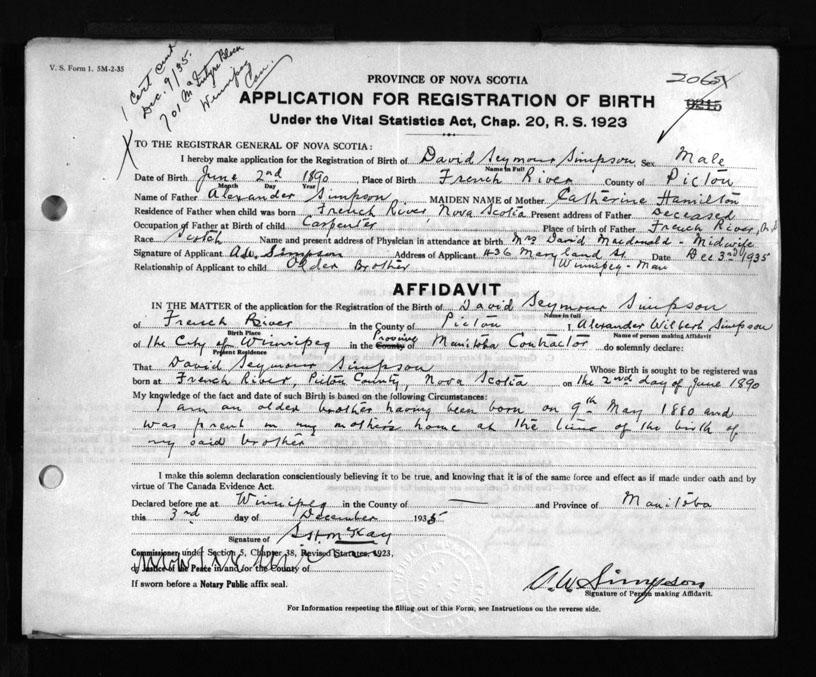 V. S. Form 1. 5M-2-35
1 Cert sent
Dec. 9/35.
701 McIntyre Block
Winnipeg
Can.
2065
9215
PROVINCE OF NOVA SCOTIA
APPLICATION FOR REGISTRATION OF BIRTH
Under the Vital Statistics Act, Chap. 20, R. S. 1923
TO THE REGISTRAR GENERAL OF NOVA SCOTIA:
I hereby make application for the Registration of Birth of David Seymour Simpson Sex Male
Name in Full
Date of Birth June 2nd 1890, Place of Birth French River County of Pictou
Month Day Year
Name of Father Alexander Simpson MAIDEN NAME of Mother Catherine Hamilton
Residence of Father when child was born French River, Nova Scotia Present address of Father Deceased
Occupation of Father at Birth of child Carpenter Place of birth of Father French River, N.S.
Race Scotch Name and present address of Physician in attendance at birth Mrs David Macdonald - Midwife
Signature of Applicant A.W. Simpson Address of Applicant 436 Maryland St. Date Dec 3rd 1935
Relationship of Applicant to child Older Brother Winnipeg - Man
AFFIDAVIT
IN THE MATTER of the application for the Registration of the Birth of David Seymour Simpson
Name in full
of French River in the County of Pictou I, Alexander Wilbert Simpson
Birth Place Name of person making Affidavit
of the City of Winnipeg in the Province County of Manitoba Contractor do solemnly declare:
Present Residence
That David Seymour Simpson Whose Birth is sought to be registered was
born at French River, Pictou County, Nova Scotia on the 2nd day of June 1890
My knowledge of the fact and date of such Birth is based on the following Circumstances:
I am an older brother having been born on 9th May 1880 and
was present in my mothers home at the time of the birth of
my said brother
I make this solemn declaration conscientiously believing it to be true, and knowing that it is of the same force and effect as if made under oath and by
virtue of The Canada Evidence Act.
Declared before me at Winnipeg in the County of — and Province of Manitoba
this 3rd day of December 1935
Signature of McKay
Commissioner under Section 5, Chapter 38, Revised Statutes, 1923,
or Justice of the Peace in and for the County of
If sworn before a Notary Public affix seal.
A.W. Simpson
Signature of Person making Affidavit.
For Information respecting the filling out of this Form, see Instructions on the reverse side.